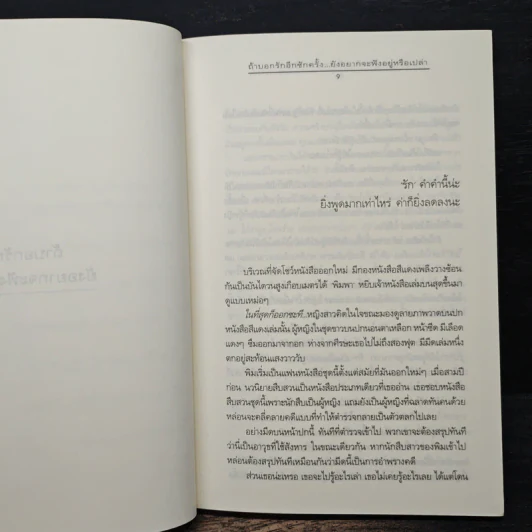 ถ้าบอกรักอีกซักครั้ง...ยังอยากจะฟังอยู่หรือเปล่า
9
'รัก' คำคำนี้น่ะ
ยิ่งพูดมากเท่าไหร่ ค่าก็ยิ่งลดลงนะ
บริเวณที่จัดโชว์หนังสือออกใหม่ มีกองหนังสือสีแดงเพลิงวางซ้อน
กันเป็นบันไดวนสูงเกือบเมตรได้ 'พิมพา' หยิบเจ้าหนังสือเล่มบนสุดขึ้นมา
ดูแบบเหม่อๆ
ในที่สุดก็ออกซะที..หญิงสาวคิดในใจขณะมองดูลายภาพวาดบนปก
หนังสือสีแดงเล่มนั้น ผู้หญิงในชุดขาวบนปกนอนตาเหลือก หน้าซีด มีเลือด
แดงๆ ซึมออกมาจากอก ห่างจากศีรษะเธอไปไม่ถึงสองฟุต มีมีดเล่มหนึ่ง
ตกอยู่สะท้อนแสงวาววับ
พิมเริ่มเป็นแฟนหนังสือชุดนี้ตั้งแต่สมัยที่มันออกใหม่ๆ เมื่อสามปี
ก่อน นวนิยายสืบสวนเป็นหนังสือประเภทเดียวที่เธออ่าน เธอชอบหนังสือ
สืบสวนชุดนี้เพราะนักสืบเป็นผู้หญิง แถมยังเป็นผู้หญิงที่ฉลาดทันคนด้วย
หล่อนจะคลี่คลายคดีแบบที่ทำให้ตำรวจกลายเป็นตัวตลกไปเลย
อย่างมีดบนหน้าปกนี้ ทันทีที่ตำรวจเข้าไป พวกเขาจะต้องสรุปทันที
ว่านี่เป็นอาวุธที่ใช้สังหาร ในขณะเดียวกัน หากนักสืบสาวของพิมเข้าไป
หล่อนต้องสรุปทันทีเหมือนกันว่ามีดนี้เป็นการอำพรางคดี
ส่วนเธอน่ะเหรอ เธอจะไปรู้อะไรเล่า เธอไม่เคยรู้อะไรเลย ได้แต่โดน